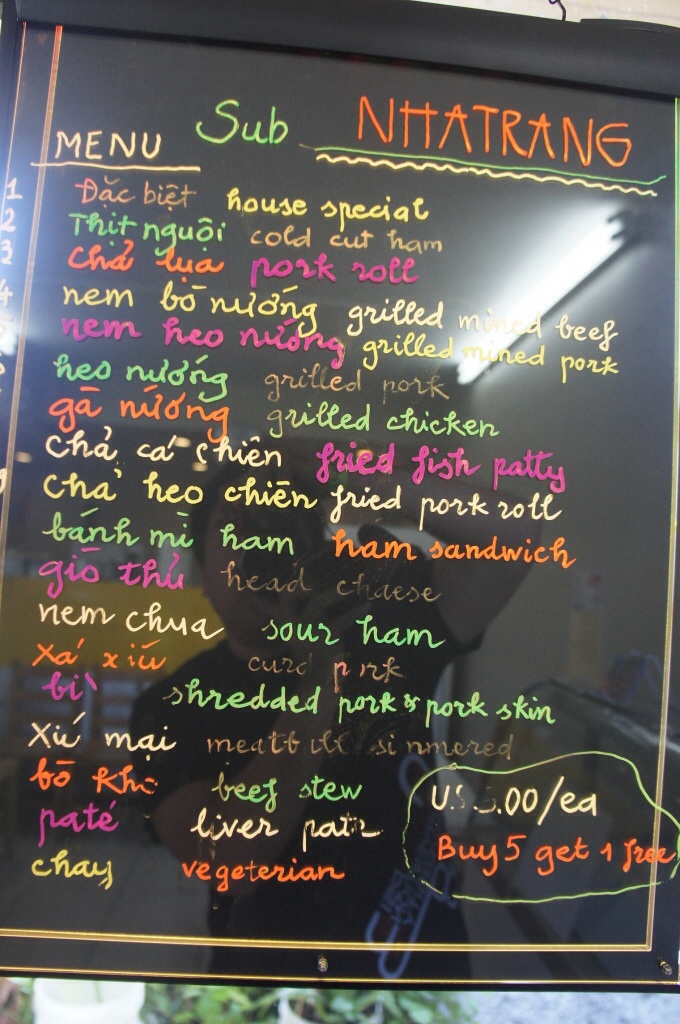 Sub NHATRANG
MENU
1 Đặc biệt house special
2 Thịt nguội cold cut ham
3 chả lụa pork roll
4 nem bò nướng grilled mined beef
nem heo nướng grilled mined pork
heo nướng grilled pork
gà nướng grilled chicken
chả cá chiên fried fish patty
chả heo chiên fried pork roll
bánh mì ham ham sandwich
giò thủ head chaese
nem chua sour ham
Xá xíu curd
bì shredded pork & pork skin
Xíu mại
bò Kho beef stew
paté liver
chay vegeterian
.00/ea
Buy 5 get 1 free